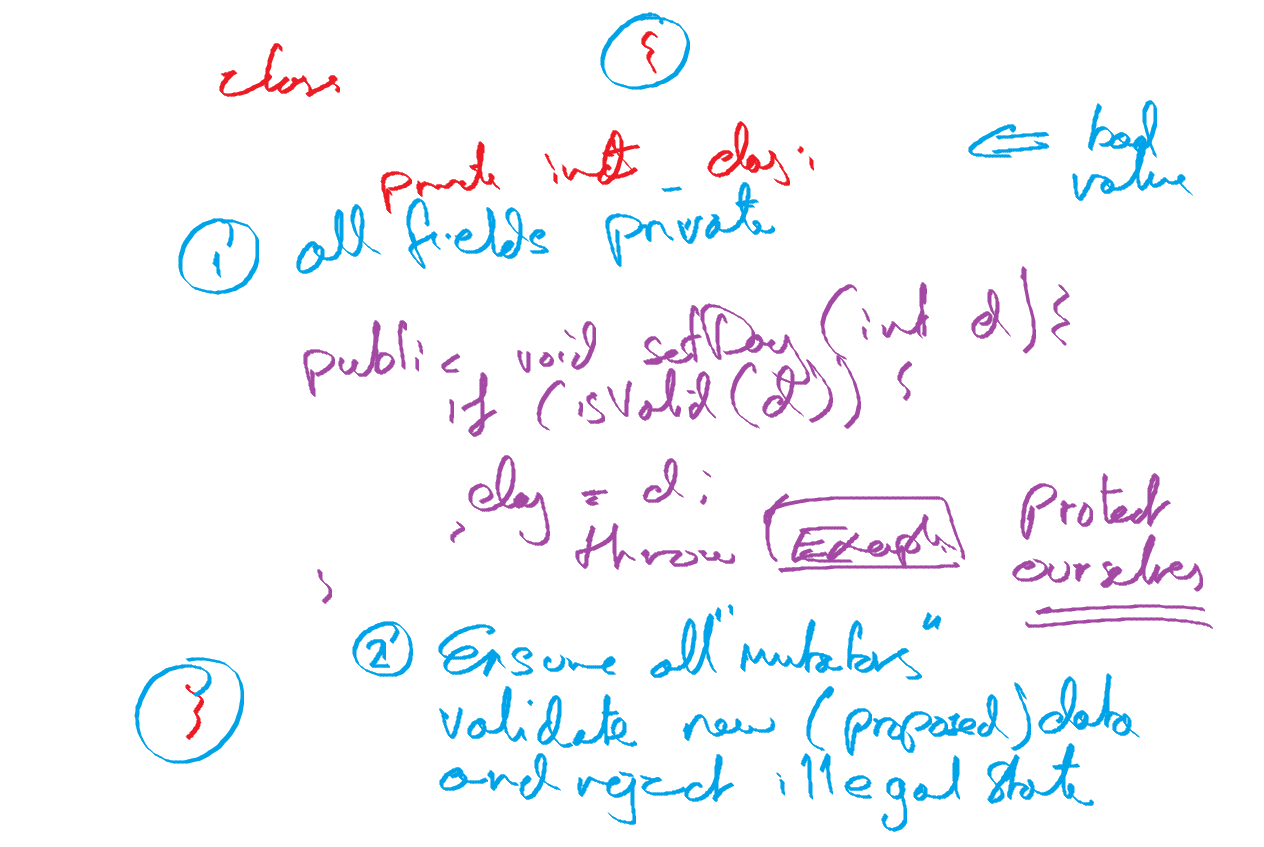 class {
private int day;
⇐ bad
value
① all fields private
public void setDay (int d) {
if (isValid(d)) {
day = d;
}
throw
Protect
ourselves
}
② Ensure all "mutators"
validate new (proposed) data
and reject illegal state
}